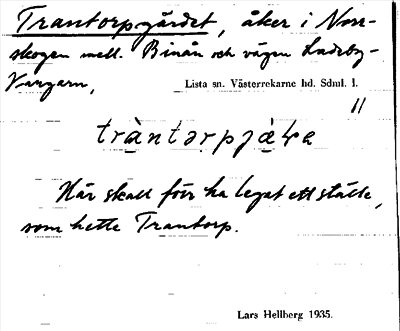 Trantorpgärdet, åker i Norr-
skogen mell. Binån och vägen Ladeby-
Vangarn,
Lista sn. Västerrekarne hd. Sdml. 1.
11
tràntərpjæ̀ɽa
Här skall förr ha legat ett ställe,
som hette Trantorp.
Lars Hellberg 1935.